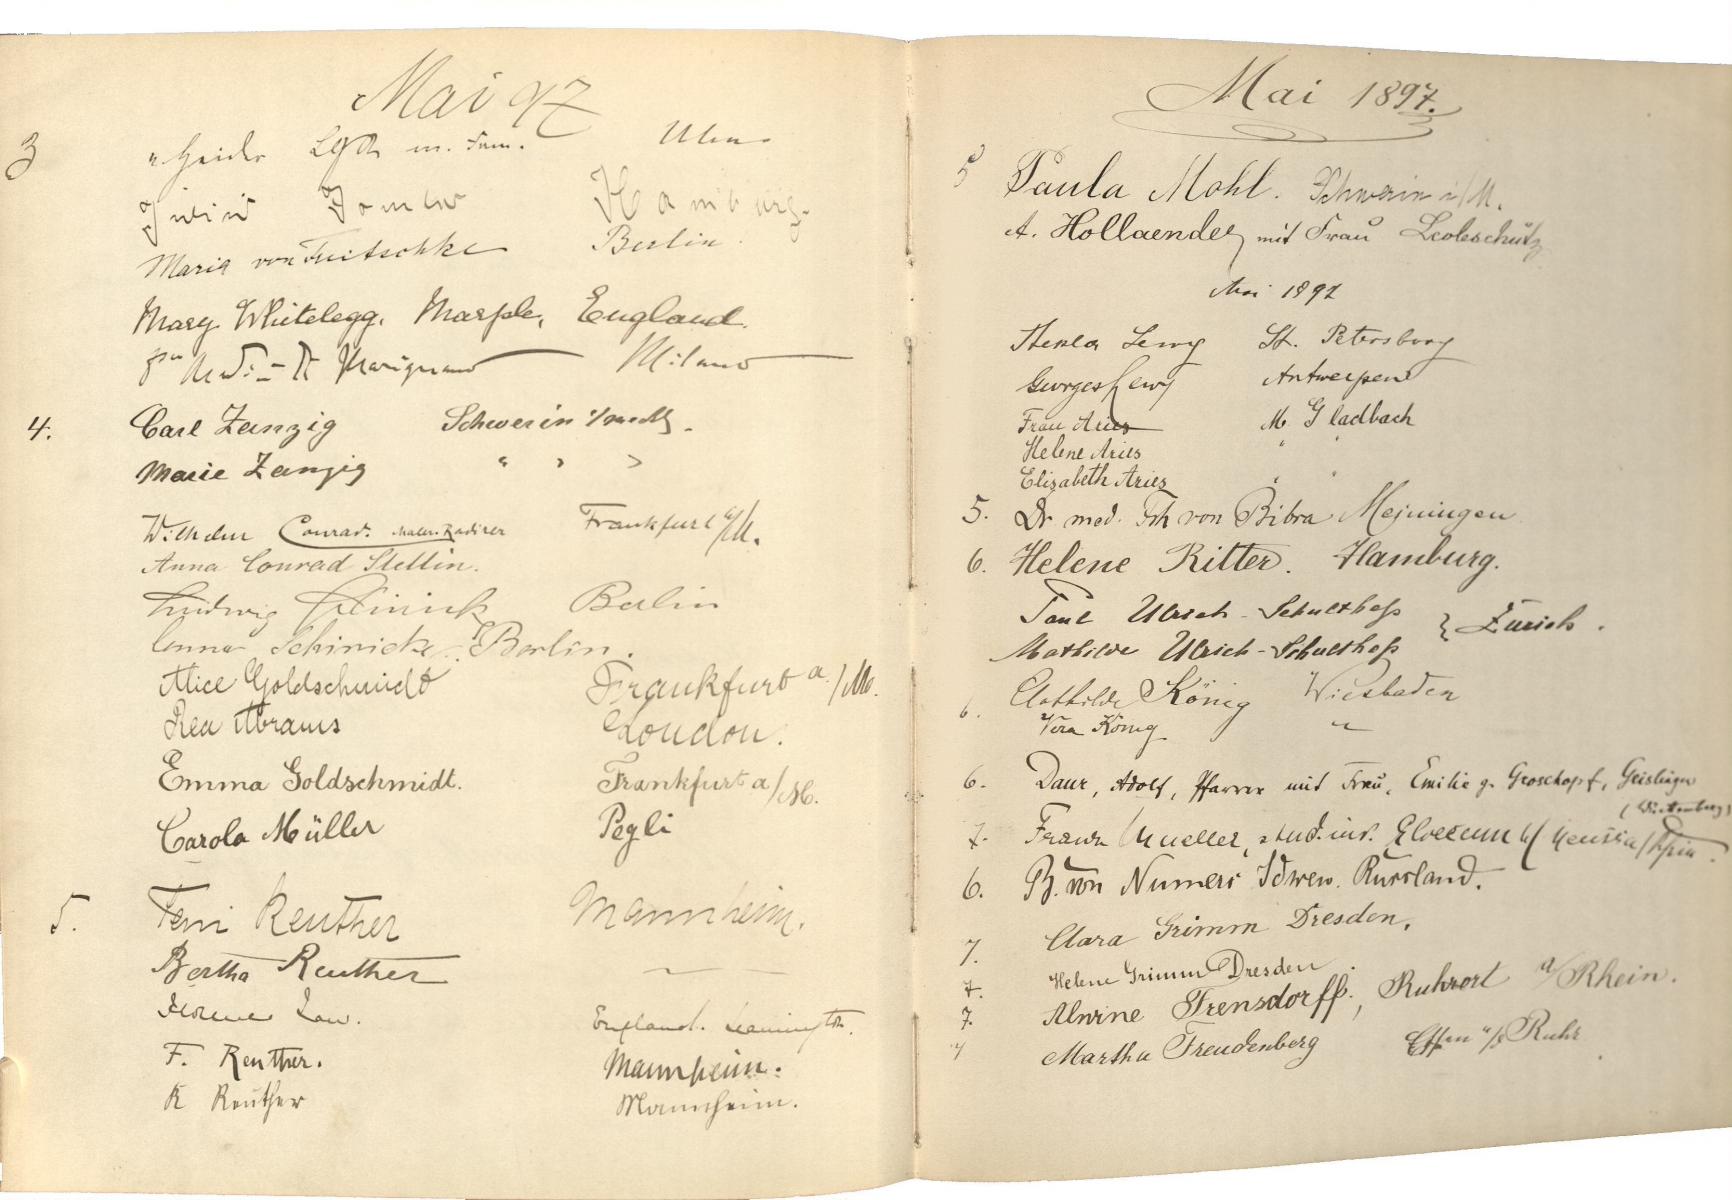 Mai 97
3
m. Fam. Ulm
Hamburg.
Maria von Berlin
Mary Whitelegg. Marple, England.
Marignano Milano
4. Carl Zanzig Schwerin i/Meckl.
Marie Zanzig " " "
Wilhelm Conrad. Maler. Radirer Frankfurt a/M.
Anna Conrad Stettin.
Ludwig Schinick Berlin
Anna Schinicke. Berlin.
Alice Goldschmidt Frankfurt a/M.
Rea Abrams London.
Emma Goldschmidt. Frankfurt a/M.
Carola Müller Pegli
5. Reuther Mannheim.
Bertha Reuther
Florence Law. England. Leamington.
F. Reuther. Mannheim.
K Reuther Mannheim.
Mai 1897.
5 Paula Mohl. Schwerin i/M.
A. Hollaender mit Frau Leobschütz
Mai 1897
Thekla Lewy St. Petersburg
Georges Lewy Antwerpen
Frau Aries M. Gladbach
Helene Aries "
Elizabeth Aries "
5. Dr med. Frh von Bibra Meiningen
6. Helene Ritter. Hamburg.
Paul Ulrich-Schulthess } Zürich.
Mathilde Ulrich-Schulthess
6. Clothilde König Wiesbaden
Vera König "
6. Daur, Adolf, Pfarrer mit Frau, Emilie g. Groschopf, Geislingen
(Württemberg)
7. Franz Mueller, stud.
6. B. von Numers Russland.
7. Clara Grimm Dresden.
7. Helene Grimm Dresden
7. Alwine Trensdorff, Ruhrort a/Rhein.
7 Martha Freudenberg Essen a/d Ruhr